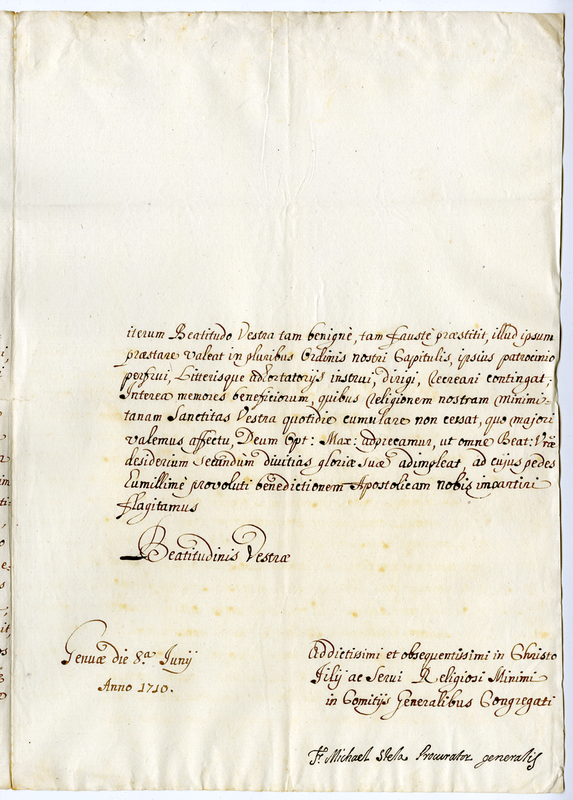 iterum Beatitudo Vestra tam benignè, tam faustè præstitit, illud ipsum
præstare valeat in pluribus Ordinis nostri Capitulis, ipsius patrocinio
perfrui, Literisque adortatorijs instrui, dirigi, recreari contingat;
Interea memores beneficiorum, quibus Religionem nostram Minimi-
tanam Sanctitas Vestra quotidie cumulare non cessat, quo majori
valemus affectu, Deum Opt: Max: adprecamur, ut omne Beat: Vræ
desiderium secundùm divitias gloriæ suæ adimpleat, ad cujus pedes
humillimè provoluti benedictionem Apostolicam nobis impartiri
flagitamus
Beatitudinis Vestræ
Genuæ die 8.a Junij
Anno 1710.
Addictissimi et obsequentissimi in Christo
Filij ac Servi Religiosi Minimi
in Comitijs Generalibus Congregati
Fr. Michael Stela Procurator generalis